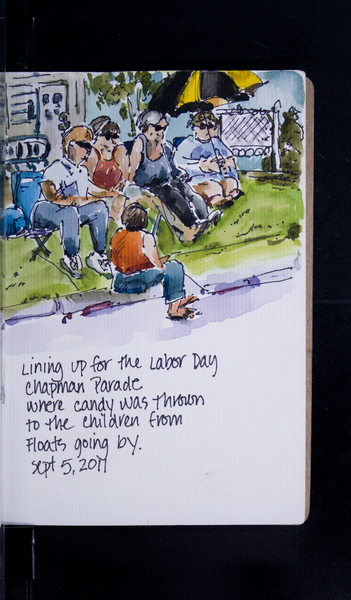 Lining up for the Labor Day
Chapman Parade
where candy was thrown
to the children from
Floats going by.
Sept 5, 2011